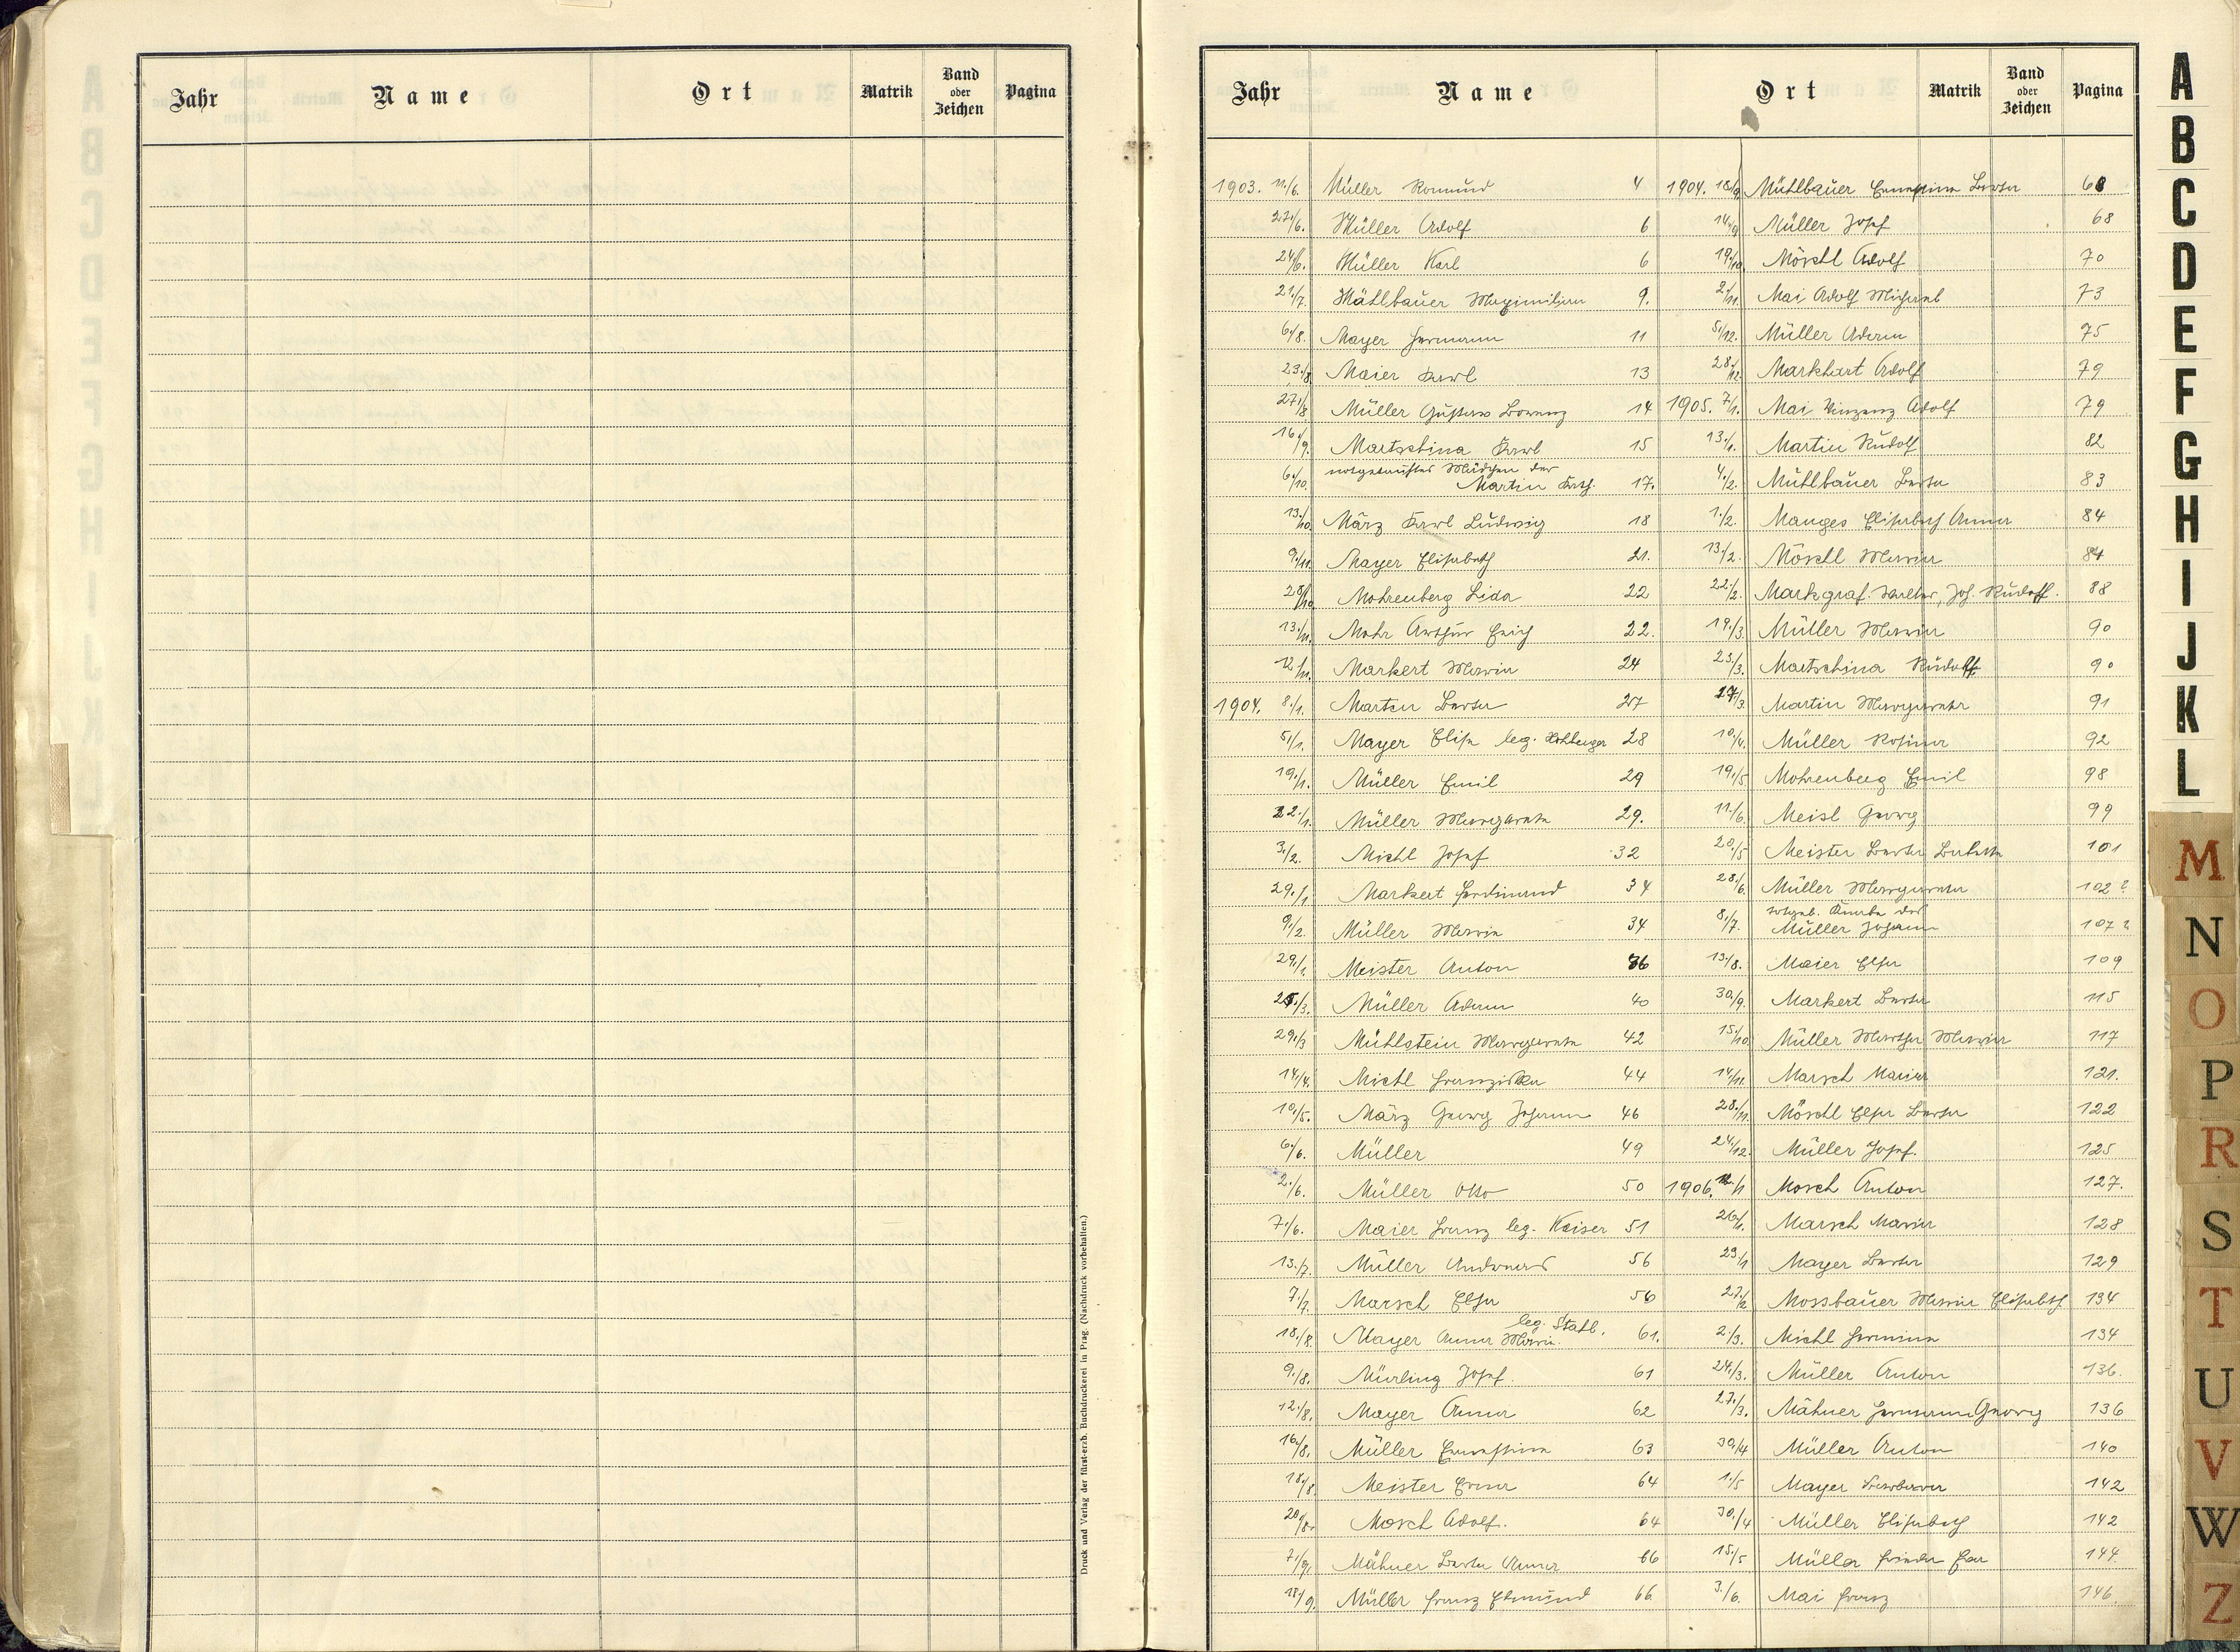 Jahr Name Ort Matrik Band oder Zeichen Pagina
Druck und Verlag der fürst-erzb. Buchdruckerei in Prag. (Nachdruck vorbehalten.)
Jahr Name Ort Matrik Band oder Zeichen Pagina
1903. 11./6. Müller Romuud 4
27./6. Müller Adolf 6
24/6. Müller Karl 6
21./7. Mühlbauer Maximilian 9.
6./8. Mayer Hermann 11
23./8. Maier Karl 13
27./8 Müller Gustav Lorenz 14
16./9. Martschina Karl 15
6./10. notgetauftes Mädchen der
Martin Kath. 17.
13./10. März Karl Ludwig 18
9./11. Mayer Elisabeth 21.
28/10. Mohrenberg Lida 22
13./11. Mohr Arthur Erich 22.
12/11. Markert Maria 24
1904. 8./1. Marten Berta 27
5./1. Mayer Elisa leg. 28
19./1. Müller Emil 29
22./1. Müller Margareta 29.
3./2. Michl Josef 32
29./1 Markert Ferdinand 34
9./2. Müller Maria 34
29./1. Meister Anton 36
25./3. Müller Adam 40
29./3 Mühlstein Margareta 42
14./4. Michl Franziska 44
10./5. März Georg Johann 46
6./6. Müller 49
2./6. Müller Otto 50
7./6. Maier Franz leg. Kaiser 51
13./7. Müller Andreas 56
7./7. Marsch Elsa 56
18./8. Mayer Anna Maria leg. Stahl. 61.
9./8. Mürling Josef. 61
12./8. Mayer Anna 62
16./8. Müller Ernestina 63
18./8. Meister Erna 64
20/8. Mosch Adolf. 64
7./9. Mähner Berta Anna 66
18/9. Müller Franz Edmund 66
1904. 18/9. Mühlbauer Ernestina Berta 68
14./9 Müller Josef 68
19./10 Möschl Adolf 70
2./11. Mai Adolf Michael 73
5./12. Müller Adam 75
28./12. Markhart Adolf 79
1905. 7/1. Mai Vinzenz Adolf 79
13./1. Martin Rudolf 82
4./2. Mühlbauer Berta 83
1./2. Manges Elisabeth Anna 84
13./2. Möschl Maria 84
22./2. Markgraf. Walter, Joh. Rudolf. 88
19./3. Müller Maria 90
23./3. Martschina Rudolf 90
27/3. Martin Margareta 91
10./4. Müller Rosina 92
19./5 Mohrenberg Emil 98
11./6. Meisl Georg 99
20./5 Meister Berta Babette 101
28./6. Müller Margareta 102?
8./7. totgeb. Knabe des
Müller Johann 107?
13./8. Maier Elsa 109
30./9. Markert Berta 115
15./10. Müller Martha Maria 117
14/11. Marsch Maria 121.
28./11. Möschl Elsa Berta 122
24./12. Müller Josef. 125
1906. /1 Mosch Anton 127.
26./1. Marsch Maria 128
29./1 Mayer Berta 129
27./2. Mossbauer Maria Elisabeth 134
2./3. Michl Hermina 134
24./3. Müller Anton 136.
27./3. Mähner Hermann Georg 136
30./4 Müller Anton 140
1./5 Mayer Barbara 142
30./4 Müller Elisabeth 142
15./5 Müller Frieda Eva 144.
3./6. Mai Franz 146.
A
B
C
D
E
F
G
H
I
J
K
L
M
N
O
P
R
S
T
U
V
W
Z